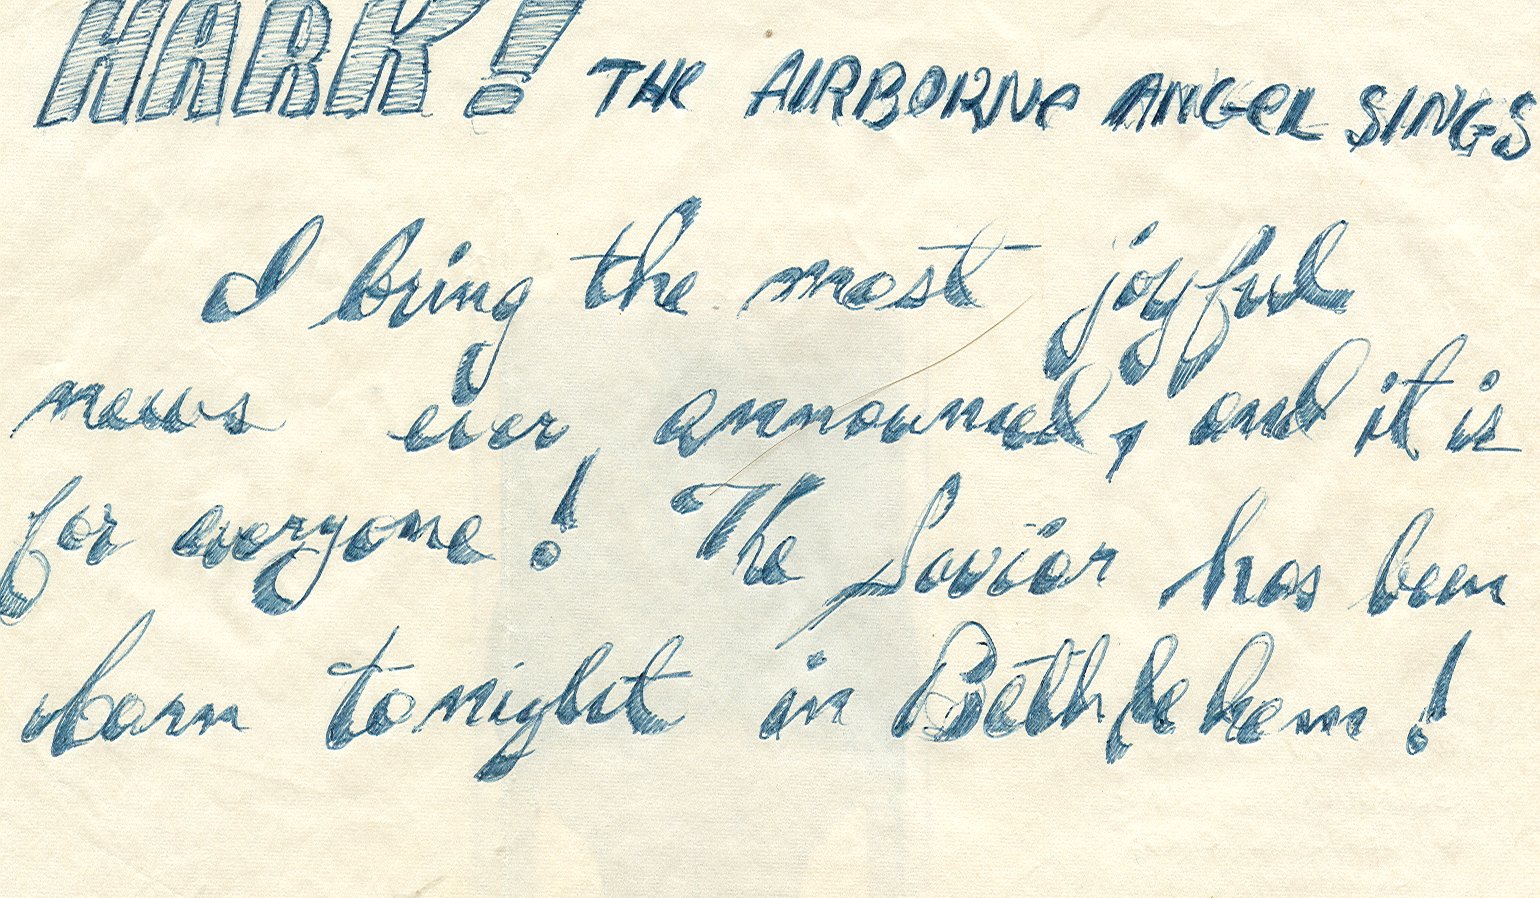 HARK! THE AIRBORNE ANGEL SINGS
I bring the most joyful
news ever announced, and it is
for everyone! The Savior has been
born tonight in Bethlehem!